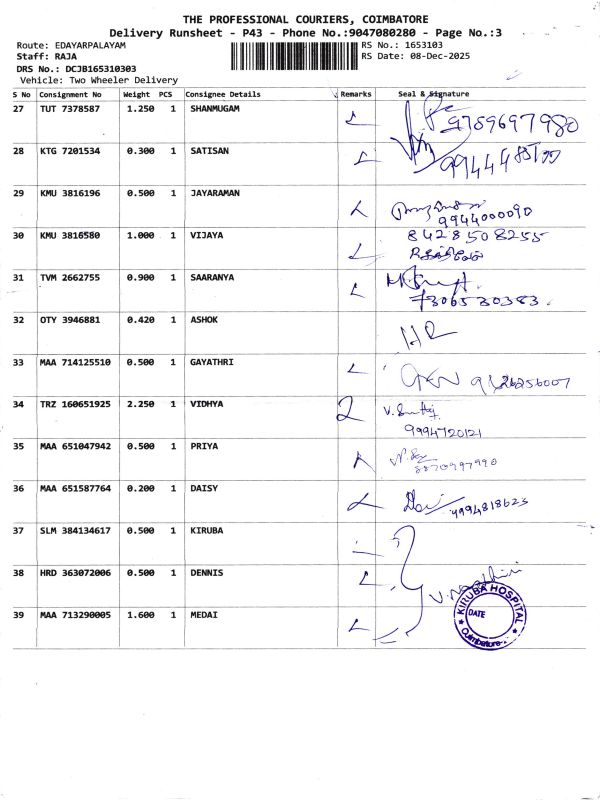 THE PROFESSIONAL COURIERS, COIMBATORE
Delivery Runsheet - P43 - Phone No.:9047080280 - Page No.:3
Route: EDAYARPALAYAM RS No.: 1653103
Staff: RAJA RS Date: 08-Dec-2025
DRS No.: DCJB165310303
Vehicle: Two Wheeler Delivery
S No Consignment No Weight PCS Consignee Details Remarks Seal & Signature
27 TUT 7378587 1.250 1 SHANMUGAM
9789697980
28 KTG 7201534 0.300 1 SATISAN
29 KMU 3816196 0.500 1 JAYARAMAN
9944000090
30 KMU 3816580 1.000 1 VIJAYA 8428508255
31 TVM 2662755 0.900 1 SAARANYA
7306530383.
32 OTY 3946881 0.420 1 ASHOK
33 MAA 714125510 0.500 1 GAYATHRI
34 TRZ 160651925 2.250 1 VIDHYA
9994720121
35 MAA 651047942 0.500 1 PRIYA
8870997990
36 MAA 651587764 0.200 1 DAISY
9994818623
37 SLM 384134617 0.500 1 KIRUBA
38 HRD 363072006 0.500 1 DENNIS
39 MAA 713290005 1.600 1 MEDAI
KIRUBA HOSPITAL
DATE
Coimbatore